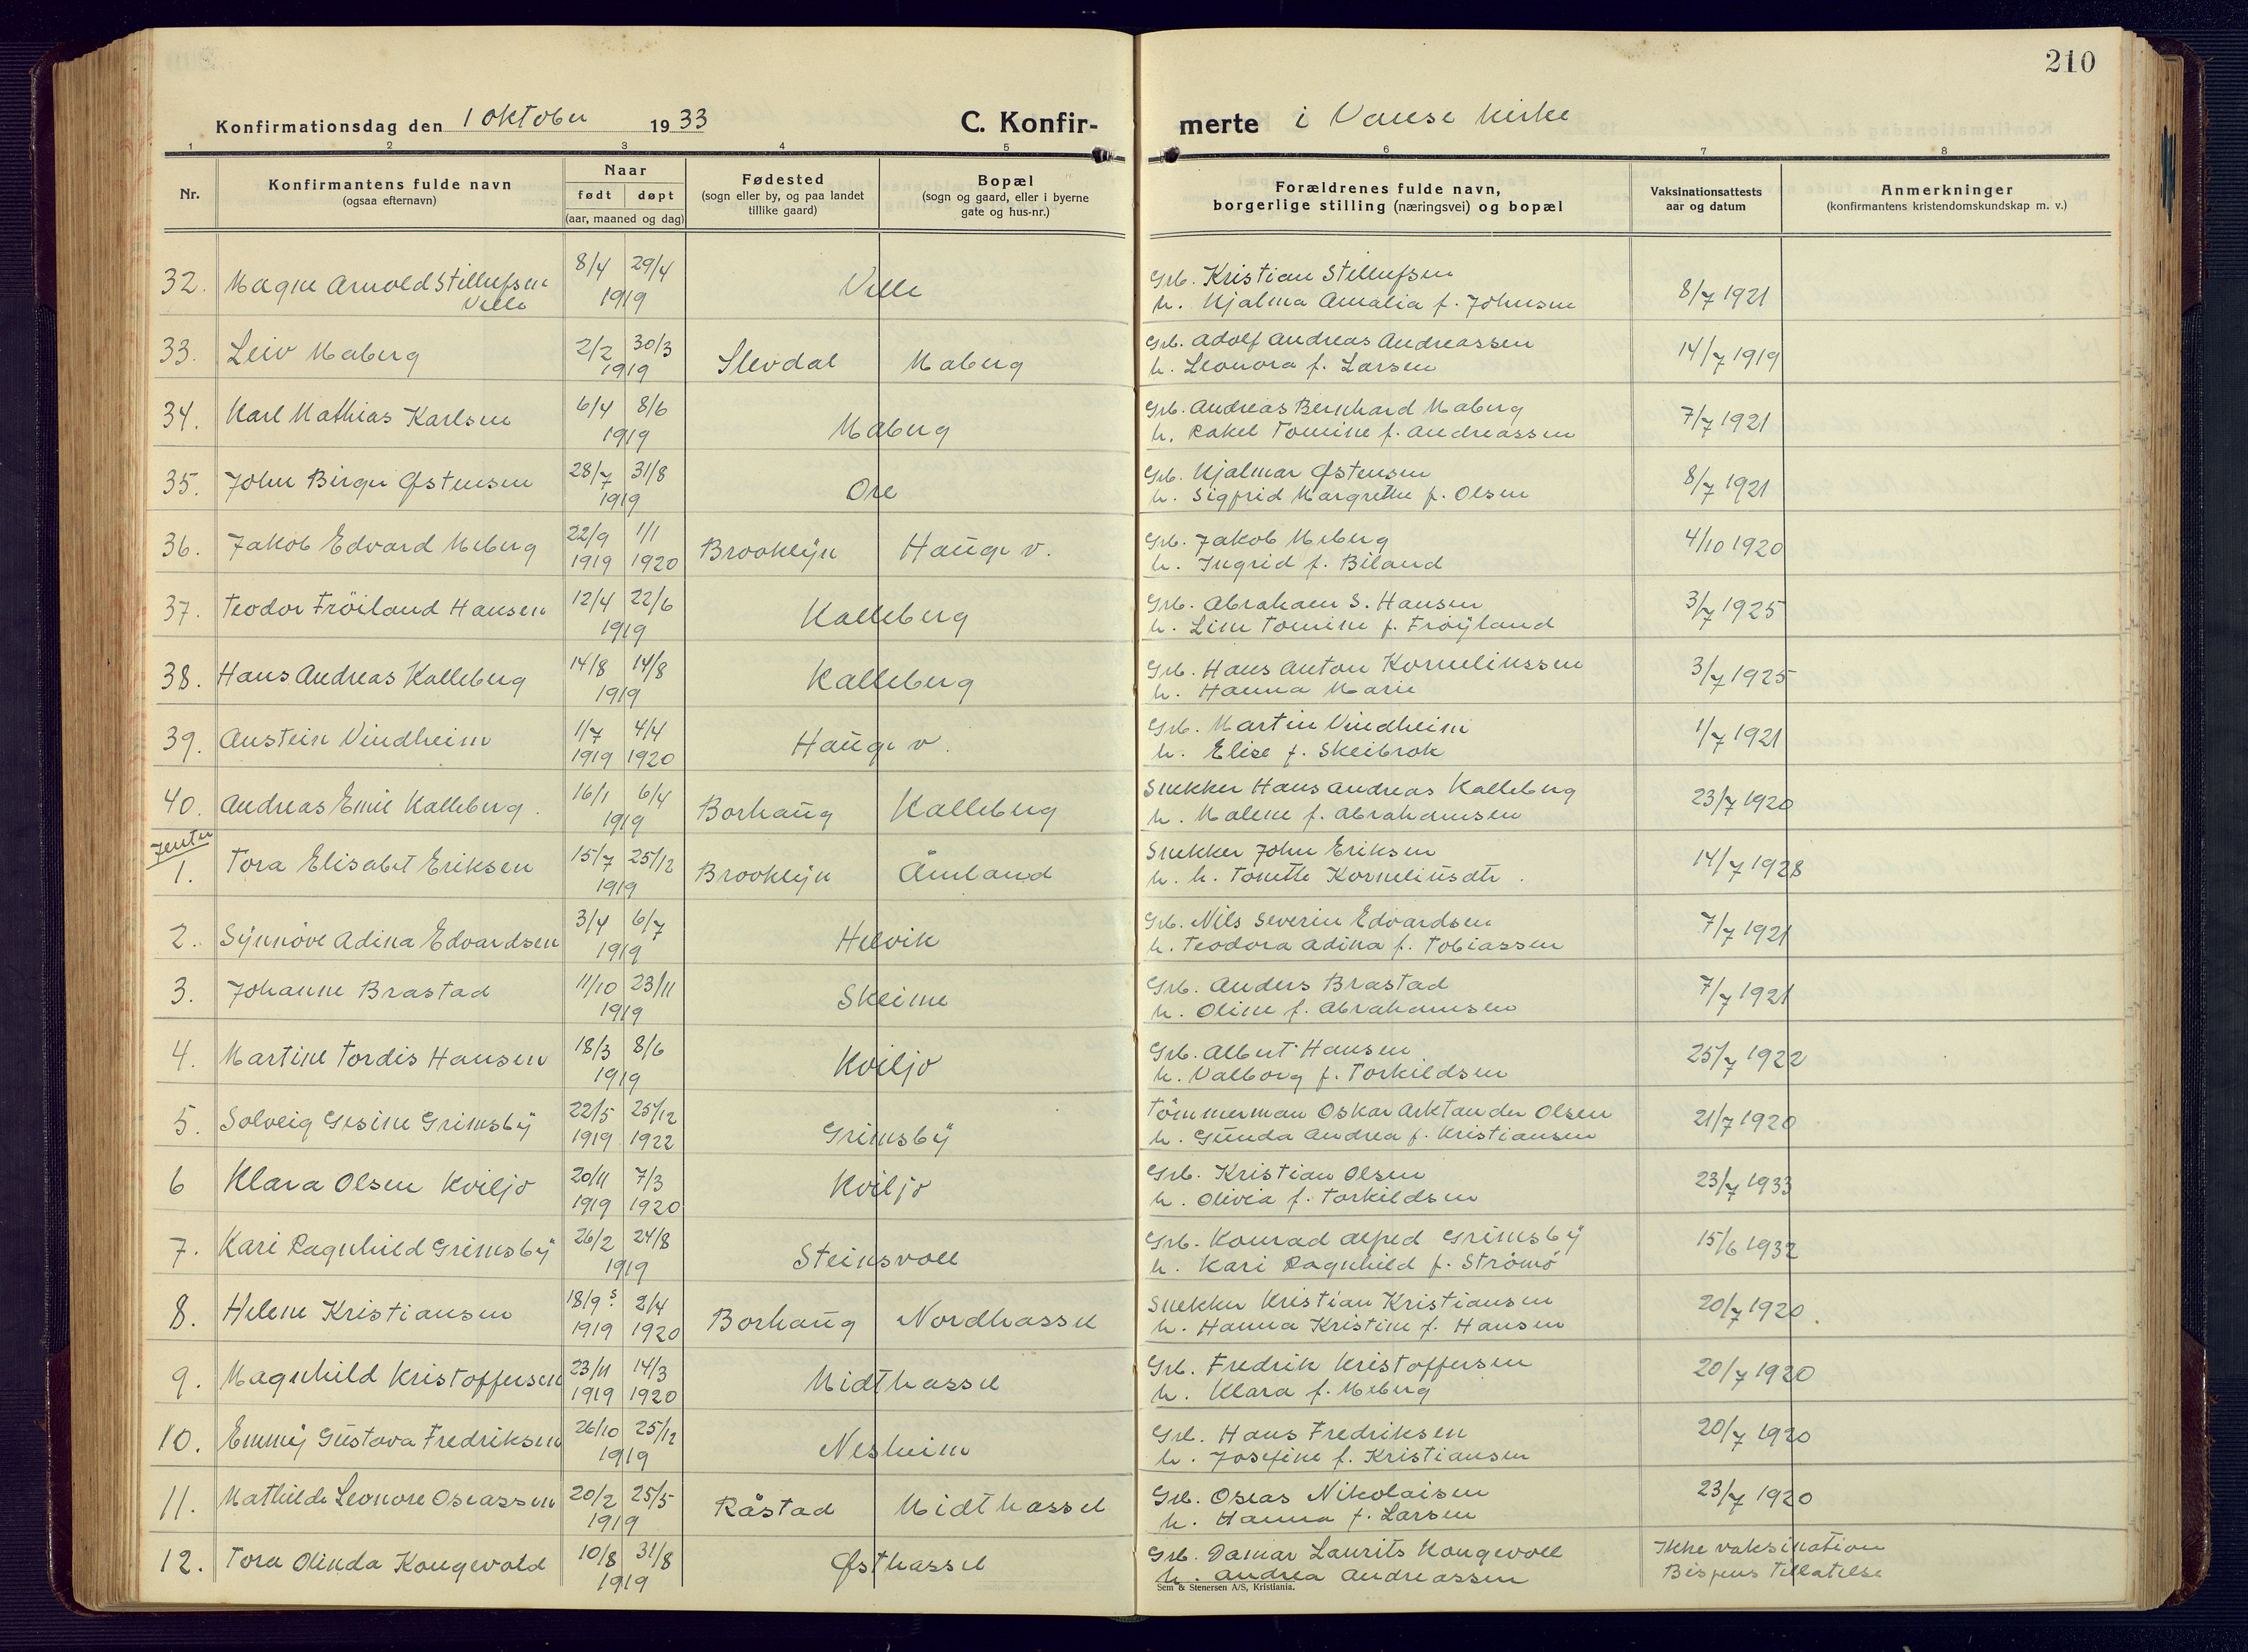 210
Konfirmationsdag den 1 oktober 1933
C. Konfirmerte i Vanse kirke
1 2 3 4 5 6 7 8
Nr.
Konfirmantens fulde navn
(ogsaa efternavn)
Naar
født døpt
(aar, maaned og dag)
Fødested
(sogn eller by, og paa landet
tillike gaard)
Bopæl
(sogn og gaard, eller i byerne
gate og hus-nr.)
Forældrenes fulde navn,
borgerlige stilling (næringsvei) og bopæl
Vaksinationsattests
aar og datum
Anmerkninger
(konfirmantens kristendomskundskap m. v.)
32. Magne Arnold Stellufsen 8/4 29/4 Velle Grb. Kristian Stellufsen 8/7 1921
Velle 1919 h. Hjalma Amalia f. Johnsen
33. Leiv Maberg 2/2 30/3 Slevdal Maberg Grb. Adolf Andreas Andreassen 14/7 1919
1919 h. Leonora f. Larsen
34. Karl Mathias Karlsen 6/4 8/6 Maberg Grb. Andreas Bernhard Maberg 7/7 1921
1919 h. Rakel Tomine f. Andreassen
35. John Birger Østensen 28/7 31/8 Ore Grb. Hjalmar Østensen 8/7 1921
1919 h. Sigfrid Margrethe f. Olsen
36. Jakob Edvard Meberg 22/9 1/1 Brooklyn Hauge v. Grb. Jakob Meberg 4/10 1920
1919 1920 h. Ingrid f. Biland
37. Teodor Fröiland Hansen 12/4 22/6 Kalleberg Grb. Abraham S. Hansen 3/7 1925
1919 h. Line Tomine f. Fröyland
38. Hans Andreas Kalleberg 14/8 14/8 Kalleberg Grb. Hans Anton Korneliussen 3/7 1925
1919 h. Hanna Marie
39. Austein Vindheim 1/7 4/4 Hauge v. Grb. Martin Vindheim 1/7 1921
1919 1920 h. Elise f. Skeibrok
40. Andreas Emil Kalleberg. 16/1 6/4 Borhaug Kalleberg Snekker Hans Andreas Kalleberg 23/7 1920
1919 h. Malene f. Abrahamsen
Jenter
1. Tora Elisabet Eriksen 15/7 25/12 Brooklyn Åmland Snekker John Eriksen 14/7 1928
1919 h. h. Tonette Korneliusdtr.
2. Synnöve Adina Edvardsen 3/4 6/7 Helvik Grb. Nils Severin Edvardsen 7/7 1921
1919 h. Teodora Adina f. Tobiassen
3. Johanne Brastad 11/10 23/11 Skeime Grb. Anders Brastad 7/7 1921
1919 h. Oline f. Abrahamsen
4. Martine Tordis Hansen 18/3 8/6 Kviljo Grb. Albert Hansen 25/7 1922
1919 h. Valborg f. Torkildsen
5. Solveig Gesine Grimsby 22/5 25/12 Grimsby Tömmerman Oskar Arktander Olsen 21/7 1920
1919 1922 h. Gunda Andrea f. Kristiansen
6 Klara Olsen Kviljo 20/11 7/3 Kviljo Grb. Kristian Olsen 23/7 1933
1919 1920 h. Olivia f. Torkildsen
7. Kari Ragnhild Grimsby 26/2 24/8 Steinsvoll Grb. Konrad Alfred Grimsby 15/6 1932
1919 h. Kari Ragnhild f. Strömö
8. Helene Kristiansen 18/9 s. 2/4 Borhaug Nordhassel Snekker Kristian Kristiansen 20/7 1920.
1919 1920 h. Hanna Kristine f. Hansen
9. Magnhild Kristoffersen 23/11 14/3 Midthassel Grb. Fredrik Kristoffersen 20/7 1920
1919 1920 h. Klara f. Meberg
10. Emmy Gustava Fredriksen 26/10 25/12 Nesheim Grb. Hans Fredriksen 20/7 1920
1919 h. Josefine f. Kristiansen
11. Mathilde Leonore Oseassen 20/2 25/5 Råstad Midthassel Grb. Oseas Nikolaisen 23/7 1920
1919 h. Hanna f. Larsen
12. Tora Olinda Kongevold 10/8 31/8 Østhassel Grb. Damar Laurits Kongevoll Ikke vaksination
1919 h. Andrea Andreassen Bispens tillatelse
Sem & Stenersen A/S, Kristiania.